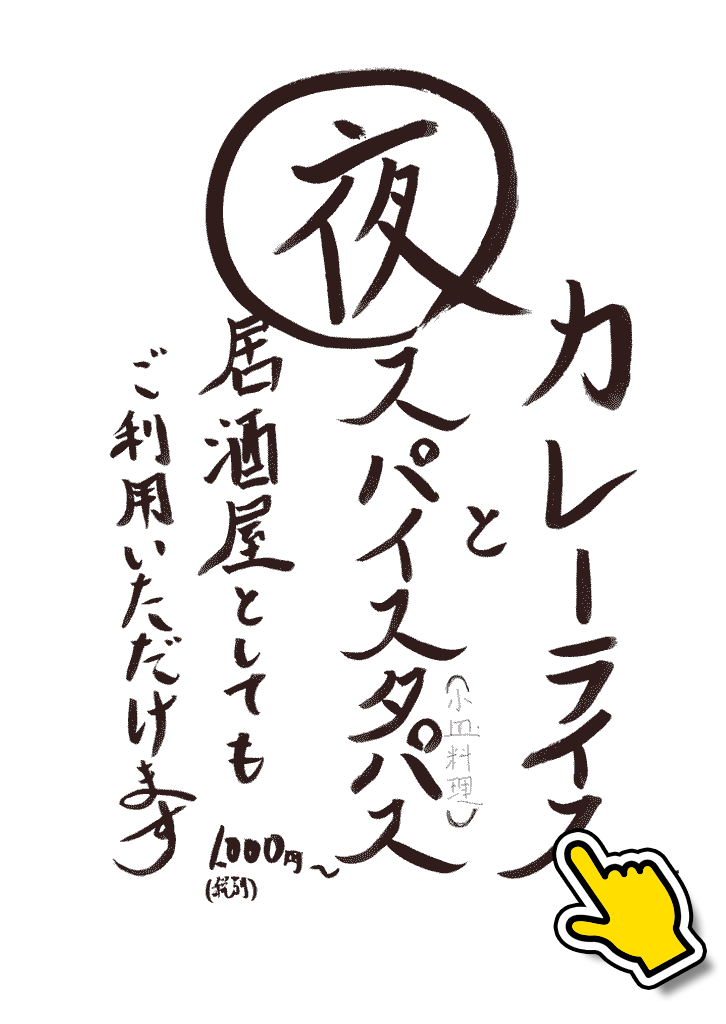 夜
カレーライス
と
スパイスタパス
（小皿料理）
居酒屋としても
ご利用いただけます
1,000円〜
(税別)